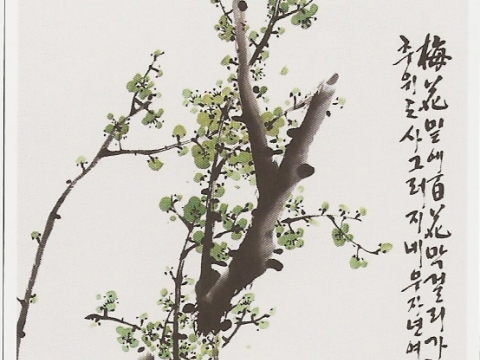 梅花밑에百花막걸리가
추위도사그러지네무진년여